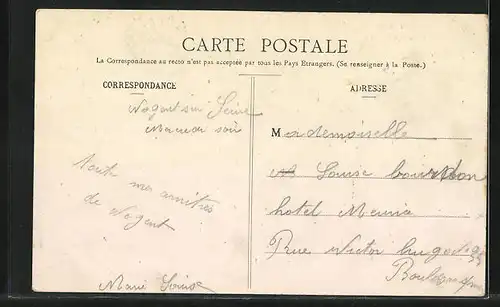 CARTE POSTALE
La Correspondance au recto n'est pas acceptée par tous les Pays Etrangers. (Se renseigner à la Poste.)
CORRESPONDANCE
Nogent sur Seine
soir
Toute mes amitiés
de Nogent
Marie Louise
ADRESSE
Mademoiselle
Louise bourdon
hotel Meunié
Rue Victor hugo